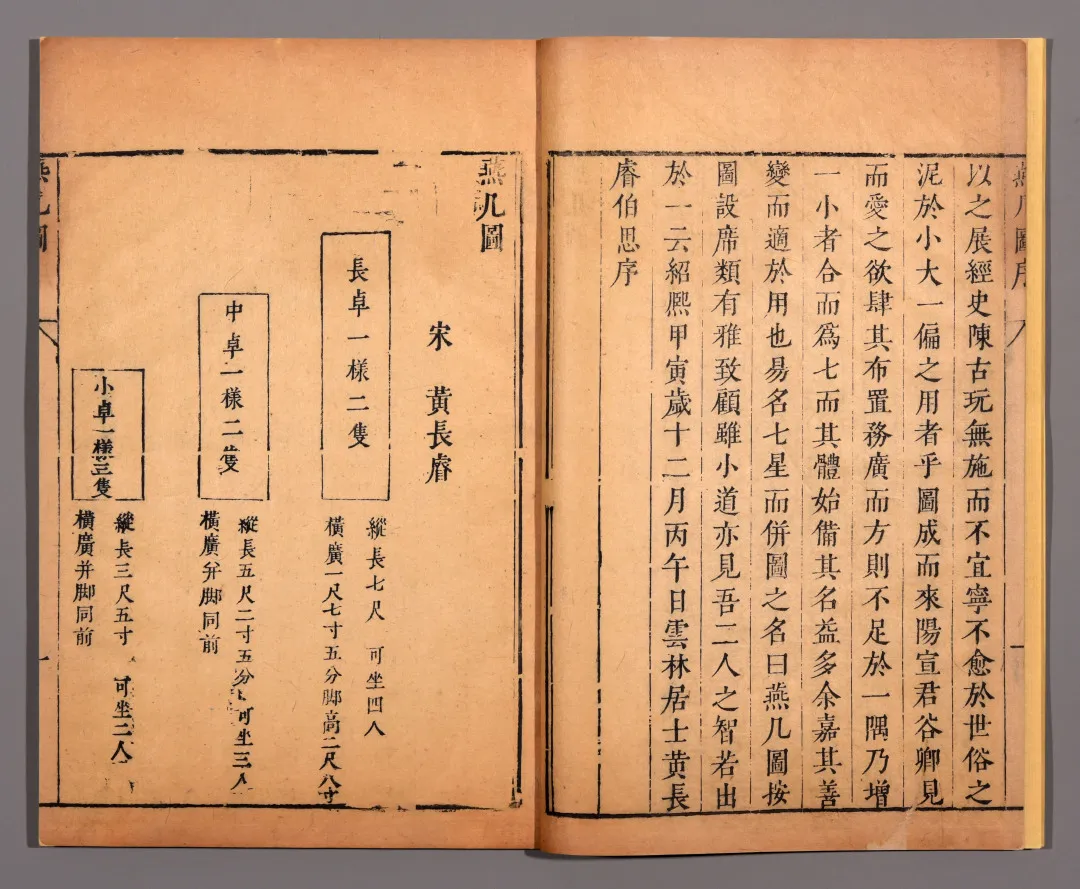 燕几圖序
以之展經史陳古玩無施而不宜寧不愈於世俗之
泥於小大一偏之用者乎圖成而來陽宣君谷卿見
而愛之欲肆其布置務廣而方則不足於一隅乃增
一小者合而爲七而其體始備其名益多余嘉其善
變而適於用也易名七星而併圖之名曰燕几圖按
圖設席類有雅致顧雖小道亦見吾二人之智若出
於一云紹熈甲寅歲十二月丙午日雲林居士黃長
睿伯思序
燕几圖
宋 黃長睿
長卓一樣二隻
縱長七尺 可坐四人
橫廣一尺七寸五分脚高二尺八寸
中卓一樣二隻
縱長五尺二寸五分 可坐三人
橫廣并脚同前
小卓一樣三隻
縱長三尺五寸 可坐二人
橫廣并脚同前
燕几圖
一